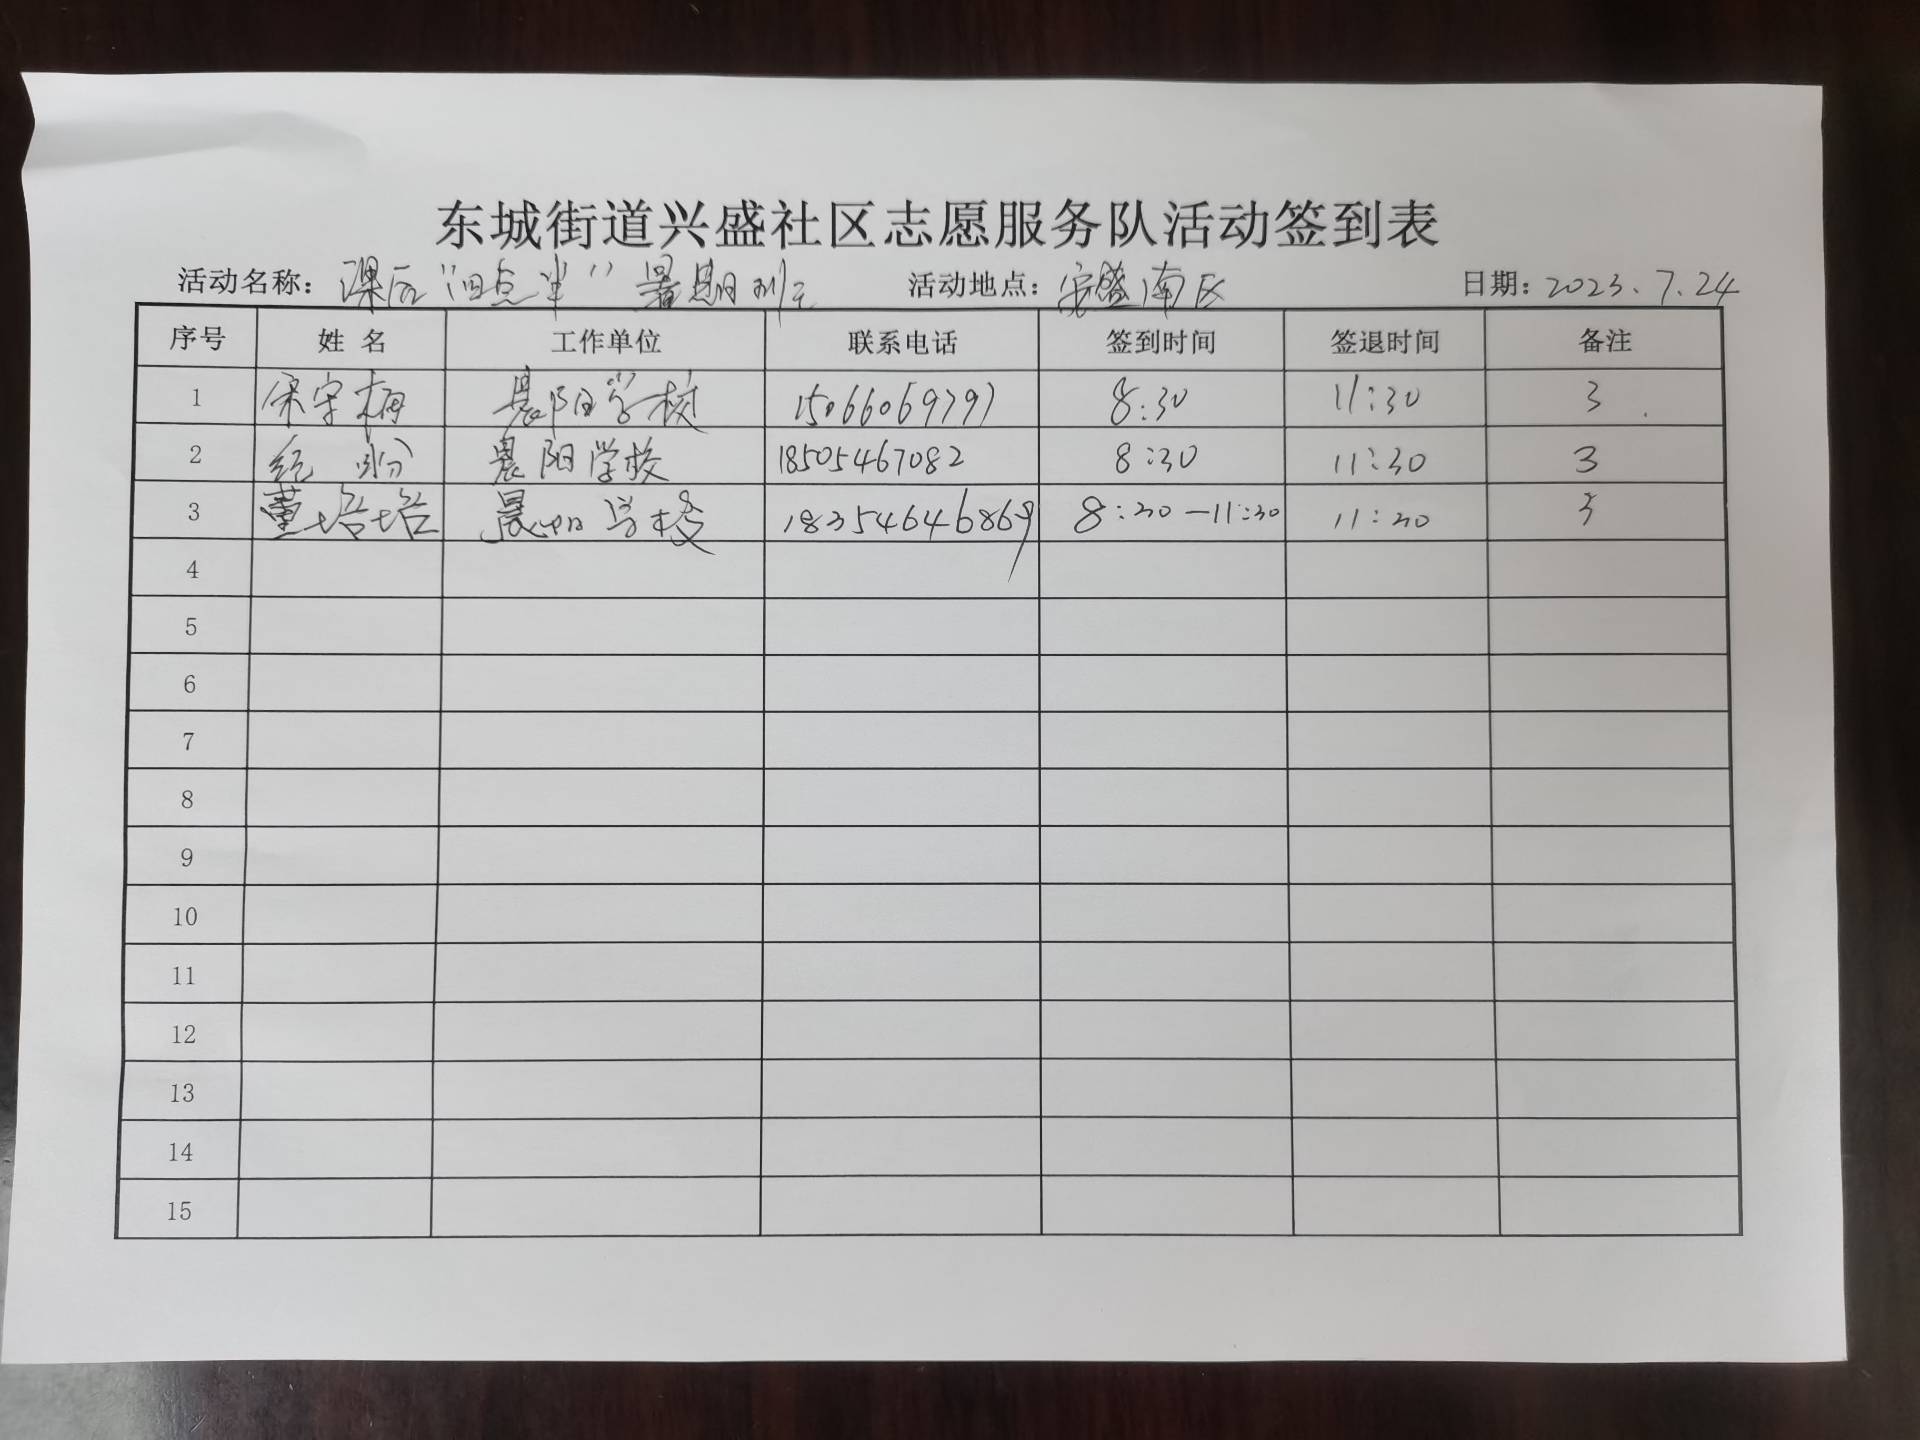 东城街道兴盛社区志愿服务队活动签到表
活动名称：课后“四点半”暑期班 活动地点：安盛南区 日期：2023.7.24
序号 姓名 工作单位 联系电话 签到时间 签退时间 备注
1 宋守梅 晨阳学校 15066069797 8:30 11:30 3
2 晨阳学校 18505467082 8:30 11:30 3
3 董培培 晨阳学校 18354646869 8:30-11:30 11:30 3
4
5
6
7
8
9
10
11
12
13
14
15